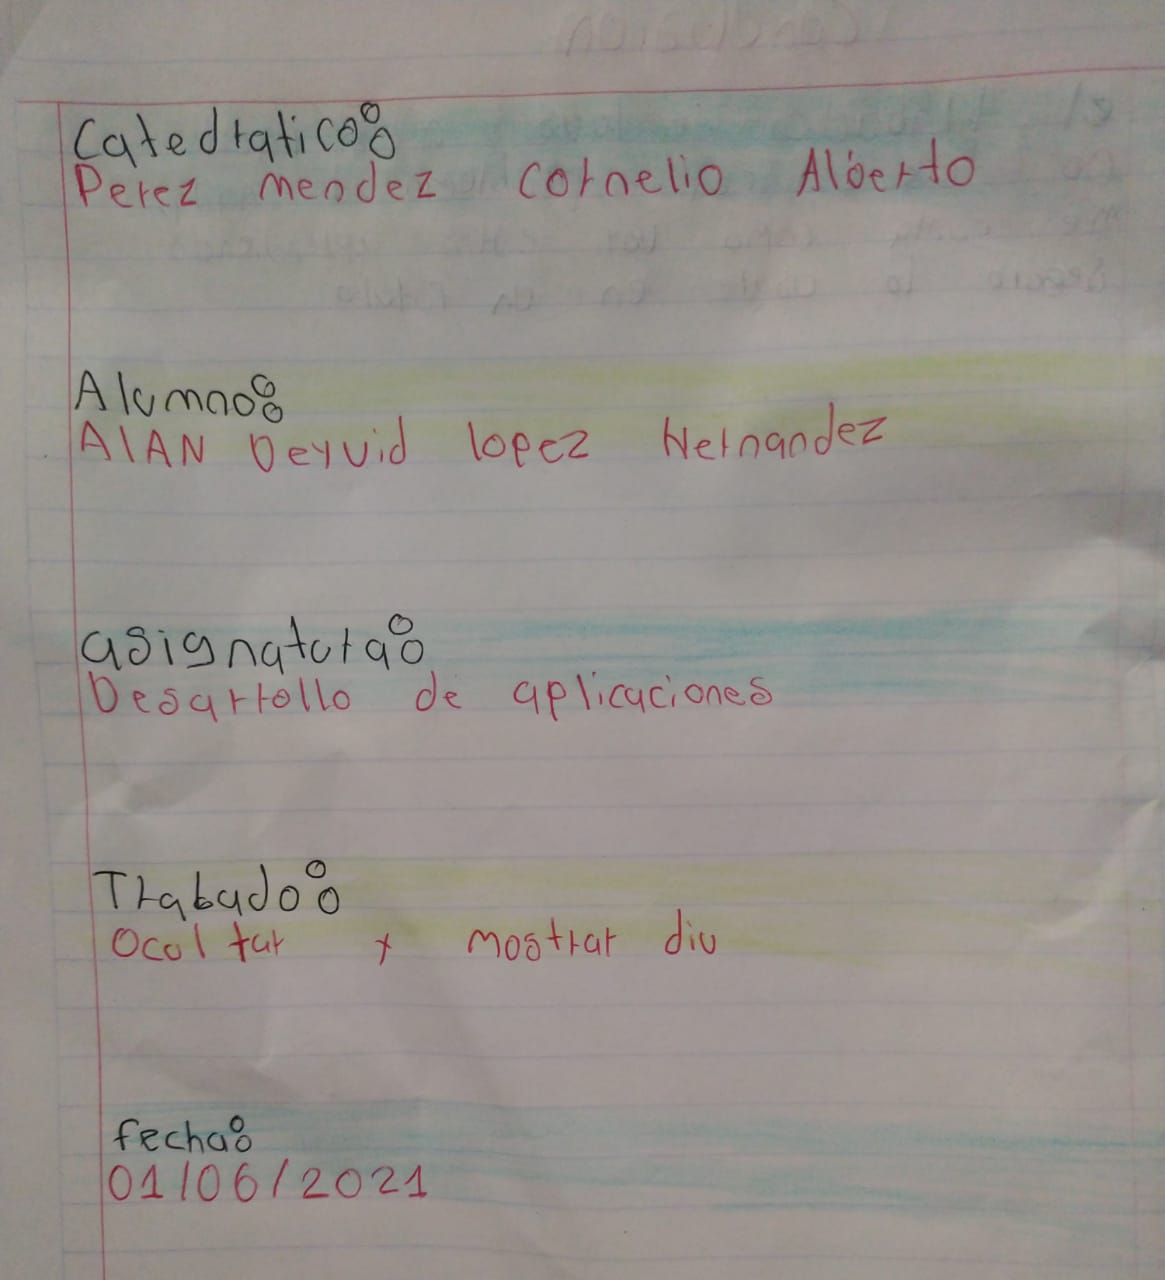 Catedratico:
Perez mendez cornelio Alberto
Alumno:
AlAN Deyvid lopez Hernandez
asignatura:
Desarrollo de aplicaciones
Trabado:
Ocultar y mostrar div
fecha:
01/06/2021